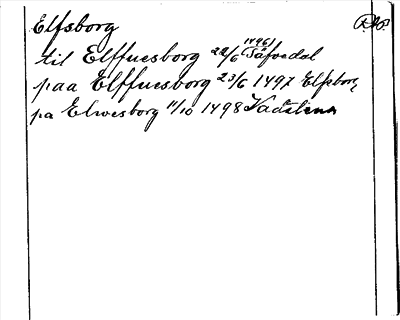 Elfsborg
til Elffuesborg 22/6 1496 Täfvedal
paa Elffuesborg 23/6 1497 Elfsborg
pa Elwesborg 11/10 1498 Vadstena